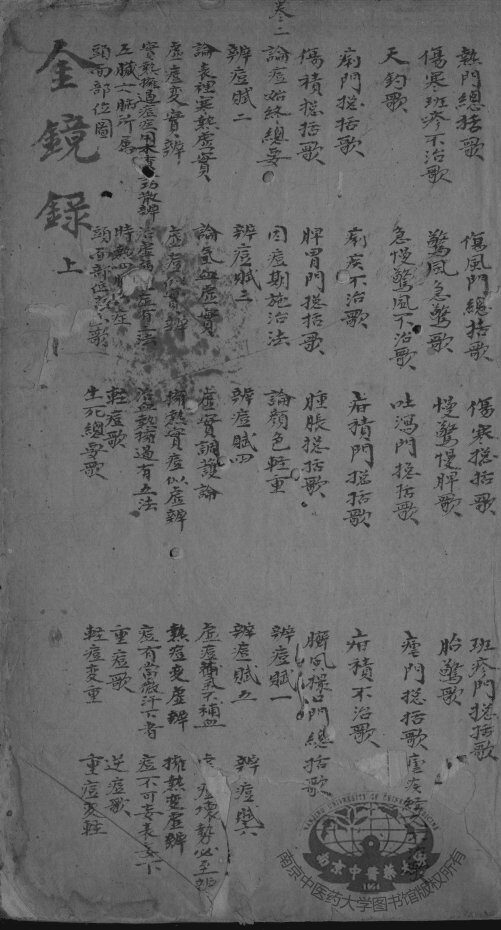 熱門總括歌 傷風門總括歌 傷寒捴括歌 班疹門捴括歌
傷寒班疹不治歌 驚風急驚歌 慢驚慢脾歌 胎驚歌
天釣歌 急慢驚風不治歌 吐瀉門捴括歌 瘧門捴括歌 瘧疾
痢門捴括歌 痢疾不治歌 疳積門捴括歌 疳積不治歌
傷積捴括歌 脾胃門捴括歌 腫脹捴括歌 臍風撮口門總括歌
卷二 論痘始終總要 因痘期施治法 論顏色輕重 辨痘賦一
辨痘賦二 辨痘賦三 辨痘賦四 辨痘賦五 辨痘賦六
論表裡寒熱虛實 論氣血虛實 虛實調護論 虛痘補氣不補血 痘壞勢必至
虛痘变實辨 虛痘似實辨 擁熱實痘似虛辨 熱痘变虛辨 擁熱变虛辨
實熱擁過痘用木香功散辨 治虛弱痘症有二法 治血熱擁過有五法 痘有當發汗下者 痘不可妄表妄下
五臟六腑所屬 時熱四症 輕痘歌 重痘歌 逆痘歌
頭面部位圖 頭面部位歌 生死總要歌 輕痘变重 重痘变輕
金鏡錄 上
NANJING UNIVERSITY OF CHINESE MEDICINE
南京中醫藥大學
1954
南京中医药大学图书馆版权所有